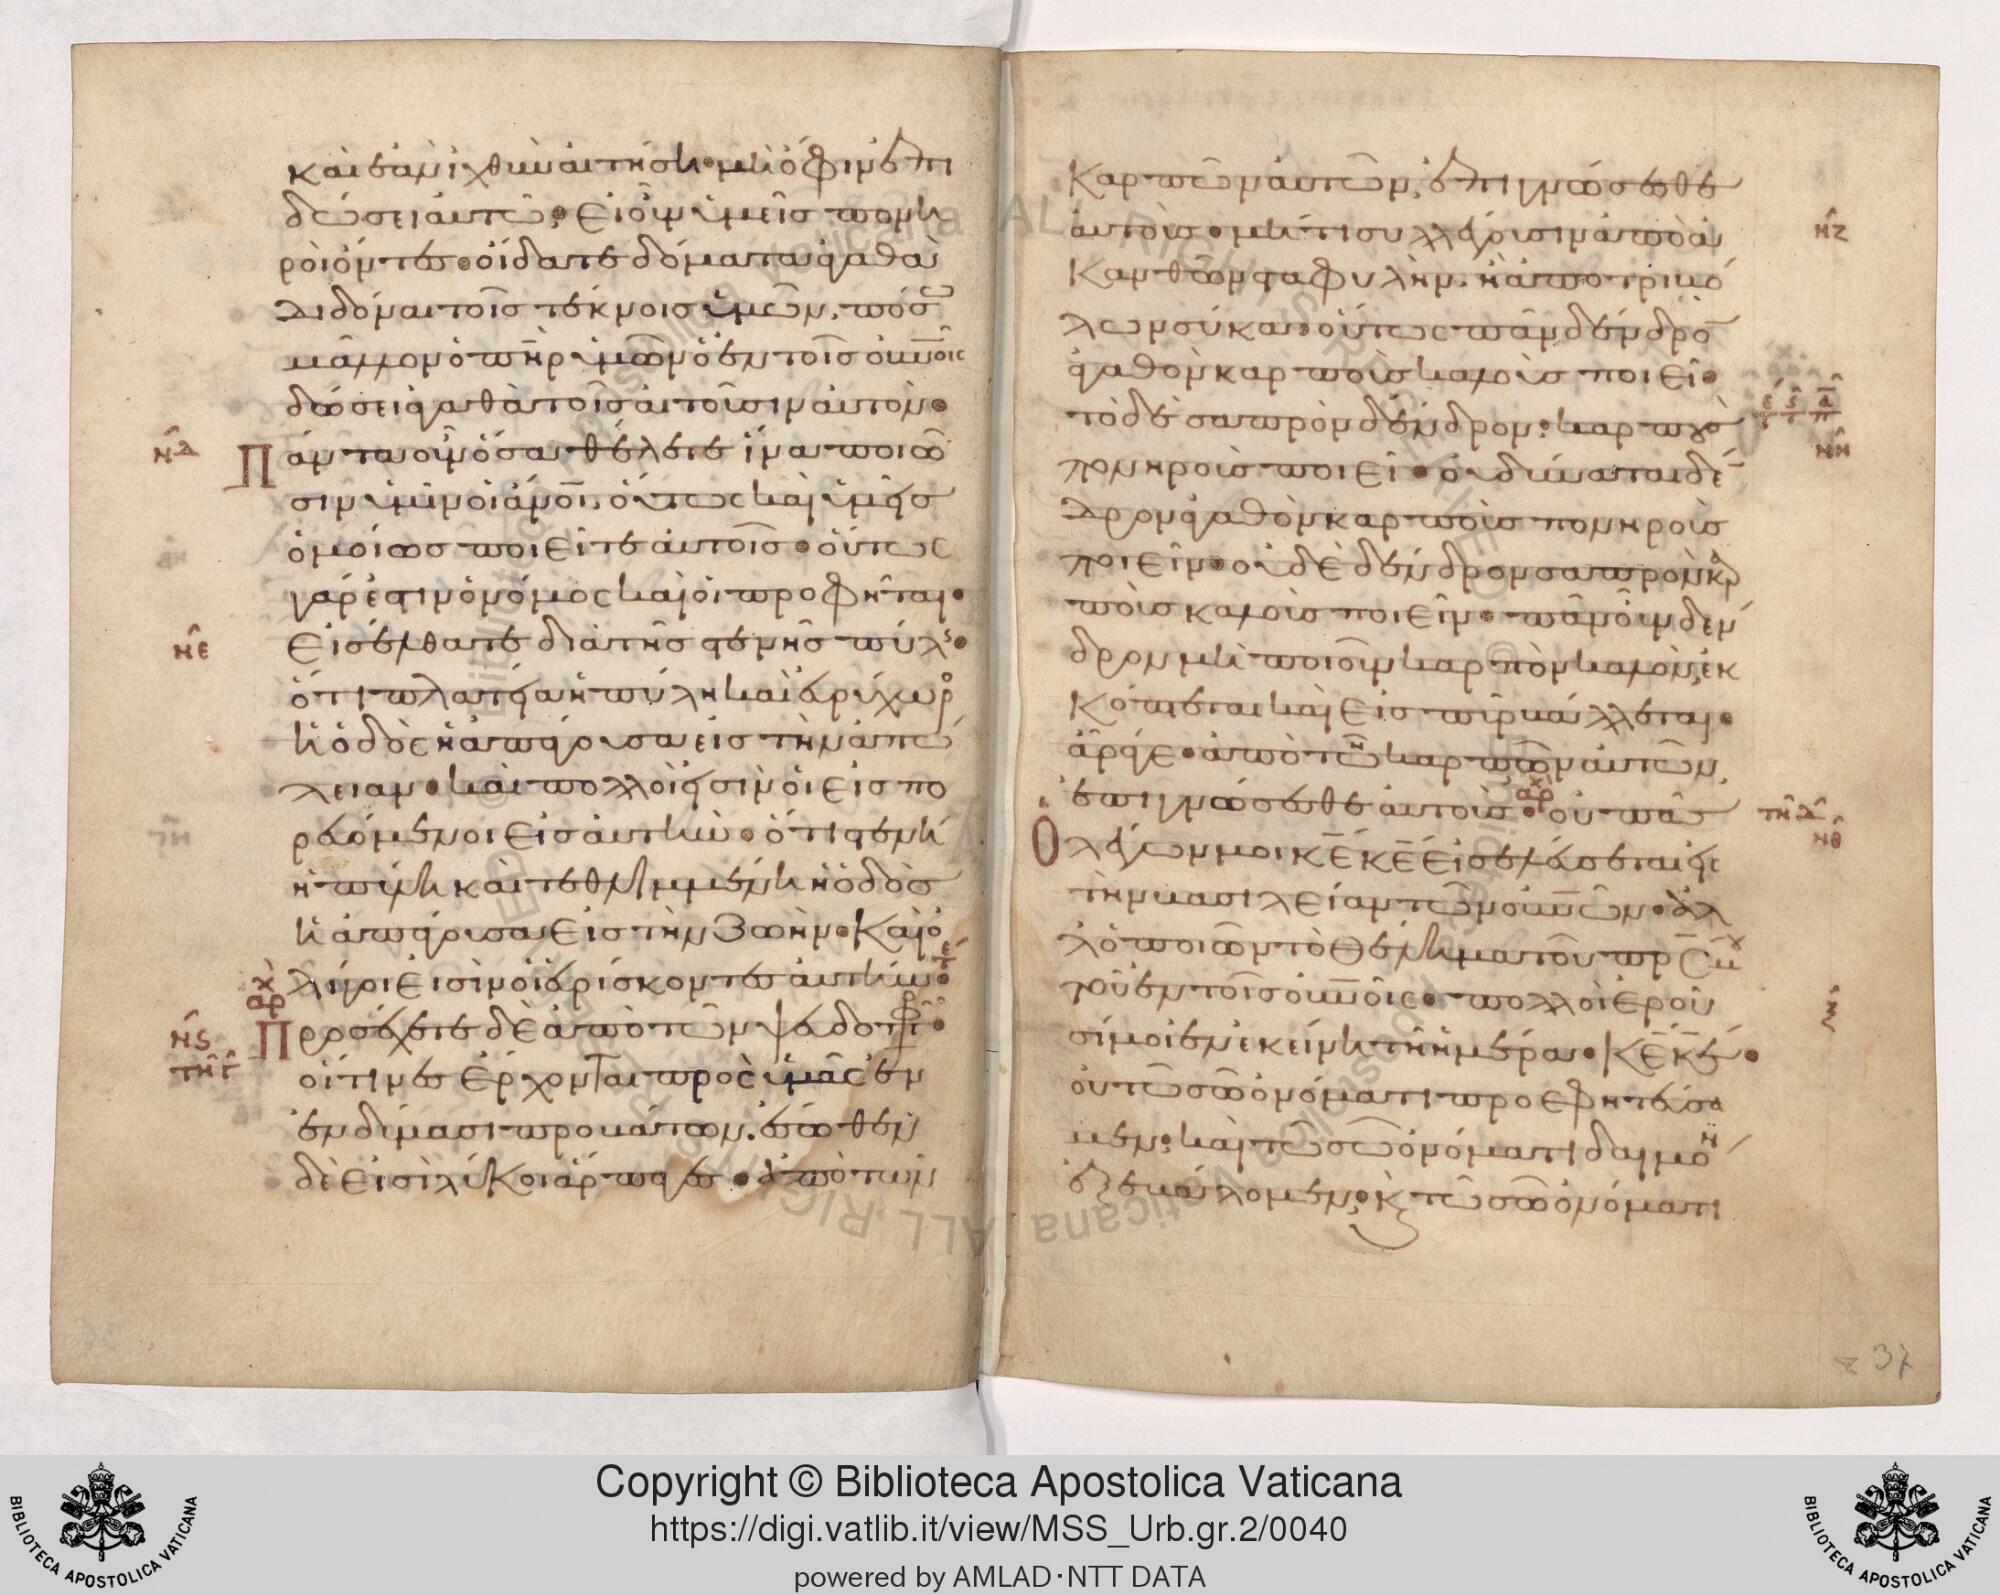 καὶ ἐὰν ἰχθὺν αἰτήσῃ· μὴ ὄφιν ἐπι
δώσει αὐτῷ; εἰ οὖν ὑμεῖς πονη
ροὶ ὄντες· οἴδατε δόματα ἀγαθὰ
διδόναι τοῖς τέκνοις ὑμῶν, πόσω
μᾶλλον ὁ πηρ ὑμῶν ὁ ἐν τοῖς οὐνοῖς
δώσει ἀγαθὰ τοῖς αἰτοῦσιν αὐτόν·
Πάντα οὖν ὅσα θέλετε ἵνα ποιῶ
σιν ὑμῖν οἱ ἀνοι, οὕτως καὶ ὑμεῖς
ὁμοίως ποιεῖτε αὐτοῖς· οὕτως
γάρ ἐστιν ὁ νόμος καὶ οἱ προφῆται·
Εἰσέλθατε διὰ τῆς στενῆς πύλης·
ὅτι πλατεῖα ἡ πύλη καὶ εὐρύχωρος
ἡ ὁδὸς ἡ ἀπάγουσα εἰς τὴν ἀπώ
λειαν· καὶ πολλοί εἰσιν οἱ εἰσπο
ρευόμενοι εἰς αὐτήν· ὅτι στενὴ
ἡ πύλη καὶ τεθλιμμένη ἡ ὁδὸς
ἡ ἀπάγουσα εἰς τὴν ζωήν· Καὶ ὀ
λίγοι εἰσὶν οἱ εὑρίσκοντες αὐτήν·
Προσέχετε δὲ ἀπὸ τῶν ψευδοπροφ·
οἵτινες ἔρχονται πρὸς ὑμᾶς ἐν
ἐνδύμασι προβάτων. ἔσωθεν
δὲ εἰσὶ λύκοι ἅρπαγες· ἀπὸ τῶν
νδ
νε
αρχ
νς
τη γ
τε
καρπῶν αὐτῶν, ἐπιγνώσεσθε
αὐτούς· μήτι συλλέγουσιν ἀπὸ ἀ
κανθῶν σταφυλήν. ἢ ἀπὸ τριβό
λων σύκα· οὕτως πᾶν δένδρον
ἀγαθὸν καρποὺς καλοὺς ποιεῖ·
τὸ δὲ σαπρὸν δένδρον· καρποὺς
πονηροὺς ποιεῖ· οὐ δύναται δέν
δρον ἀγαθὸν καρποὺς πονηροὺς
ποιεῖν· οὐδὲ δένδρον σαπρὸν καρ
ποὺς καλοὺς ποιεῖν· πᾶν οὖν δέν
δρον μὴ ποιοῦν καρπὸν καλὸν, ἐκ
κόπτεται καὶ εἰς πῦρ βάλλεται·
ἄραγε· ἀπὸ τῶν καρπῶν αὐτῶν,
ἐπιγνώσεσθε αὐτούς· οὐ πᾶς
Ὁ λέγων μοι κε κε εἰσελεύσεται εἰς
τὴν βασιλείαν τῶν οὐνῶν· ἀλ
λ' ὁ ποιῶν τὸ θέλημα τοῦ πρς μου
τοῦ ἐν τοῖς οὐνοῖς· πολλοὶ ἐροῦ
σί μοι ἐν ἐκείνῃ τῇ ἡμέρα· κε κε·
οὐ τῷ σῷ ὀνόματι προεφητεύσα
μεν· καὶ τῷ σῷ ὀνόματι δαιμόν
ἐξεβάλομεν, κ τῷ σῷ ὀνόματι
νζ
νη
αρχ
τη δ
νθ
ξ
37
Copyright © Biblioteca Apostolica Vaticana
https://digi.vatlib.it/view/MSS_Urb.gr.2/0040
powered by AMLAD·NTT DATA
BIBLIOTECA APOSTOLICA VATICANA
BIBLIOTECA APOSTOLICA VATICANA